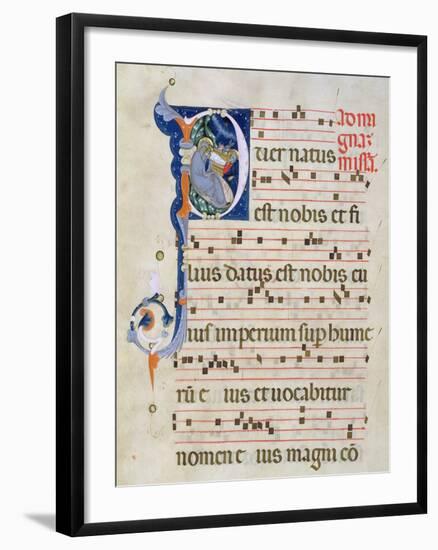 ad ma
gnaʒ
missā.
Puer natus
est nobis et fi
lius datus est nobis cu
ius imperium sup hume
rū e ius et uocabitur
nomen e ius magni cō